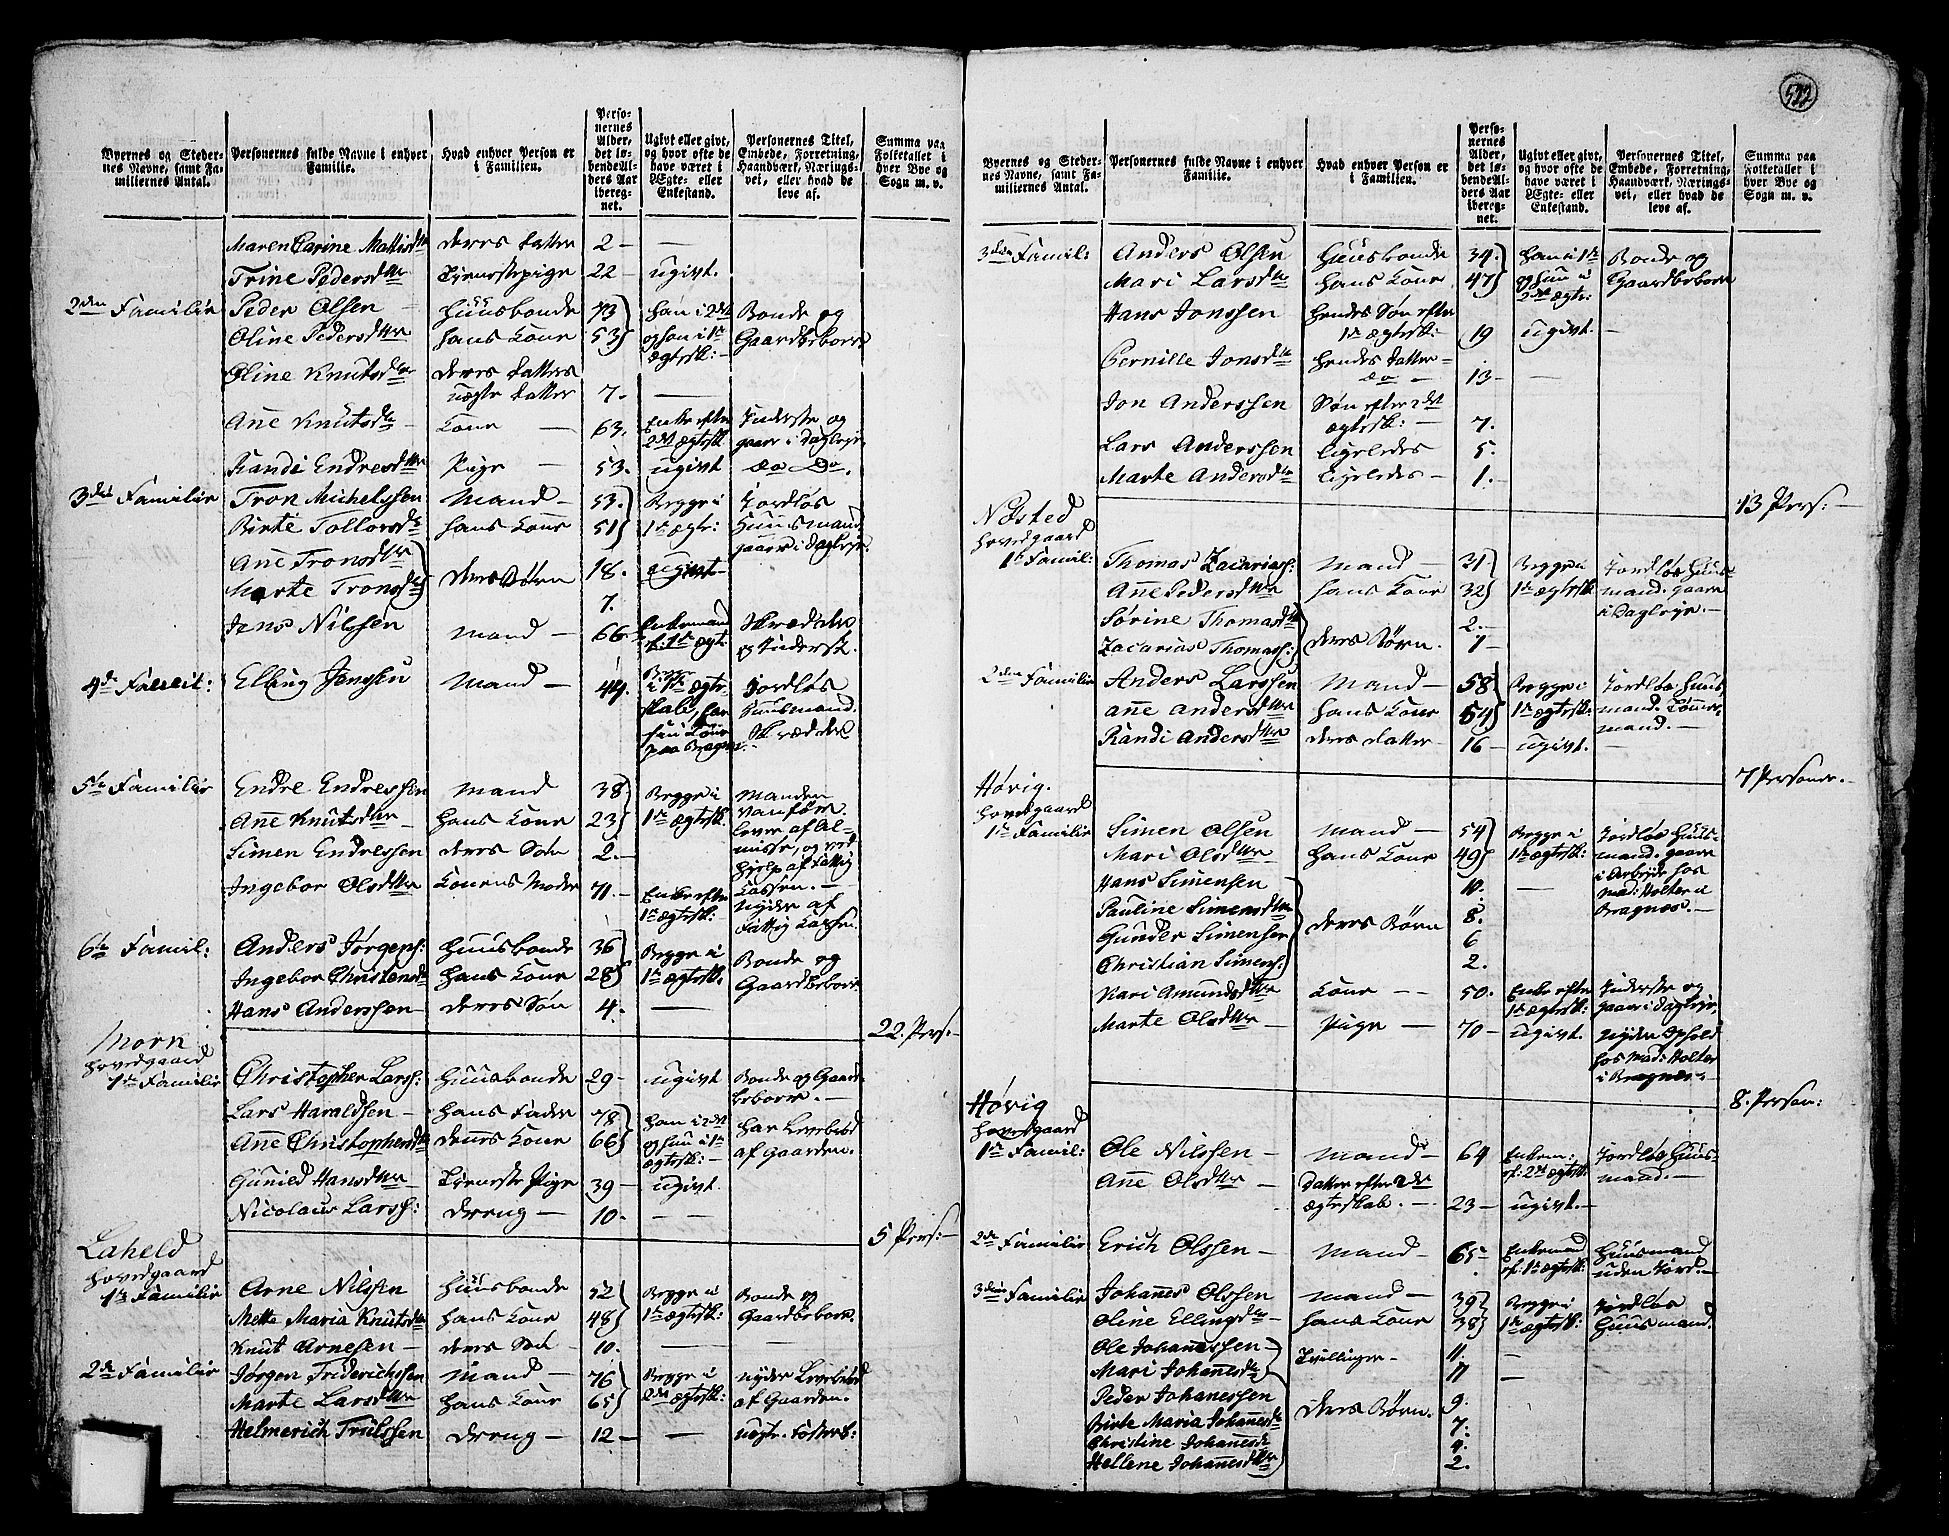 522
Byernes og Steder-
nes Navne, samt Fa-
miliernes Antal.
Personernes fulde Navne i enhver
Familie.
Hvad enhver Person er
i Familien.
Perso-
nernes
Alder,
det lø-
bende Al-
ders Aar
ibereg-
net.
Ugivt eller givt,
og hvor ofte de
have været i
Ægte- eller
Enkestand.
Personernes Titel,
Embede, Forretning,
Haandværk, Nærings-
vei, eller hvad de
leve af.
Summa paa
Folketallet i
hver Bye og
Sogn m. v.
Maren Carine Mattisd: deres datter 2 —
Trine Pedersd: Tienestepige 22 — ugivt.
2den Familie Peder Olsen Huusbonde 73 han i 2det Bonde og
Oline Pedersd: hans Kone 53 og hun i 1te Gaardbeboer
ægtesk: —
Oline Knutsd: deres datters
uægte datter 7. —
Ane Knutsd: Kone — 63. Enke efter Inderste og
2det ægtesk: gaaer i Dagleje
Randi Endresd: Pige — 53. ugivt do Do.
3die Familie Tron Michelssen Mand — 53. Begge i Jordløs
Birte Tollorsd: hans Kone 51 1te ægte: Huusmand
gaaer i Dagleje.
Ane Tronsd: deres Børn 18. ugivt
Marte Tronsd: 7.
Jens Nilssen mand — 66. Enkemand Skrædder
ef: 1te ægt. og Inderst.
4de Famil: Elling Jenssen Mand — 44. Begge
i 1te ægte- Jordløs
skab, har Huusmand.
hun Kone Skrædder
paa Bragnes.
5te Familie Endre Endressen mand 38 Begge i Manden
Ane Knutsd: hans Kone 23 1te ægtesk. vanfør
lever af Al-
Simen Endressen deres Søn 2. — misse, og ved
hjelp af Fattig
Ingebor Olsd: Konens Moder 71. — Enke efter Kassen. —
1te ægtesk: nyder af
Fattig Kassen.
6te Famil: Anders Jørgens: Huusbonde 36 Begge i Bonde og
Ingebor Christensd: hans Kone 28 1te ægtesk. Gaardbeboer
Hans Anderssen deres Søn 4. —
22. Pers: —
Mørn
hovedgaard
1te Familie Christopher Larss: Huusbonde 29 — ugivt Bonde og Gaard-
beboer. —
Lars Haraldsen — hans Fader 78 han i 2det har Levebrød
Ane Christophersd: dennes Kone 66 og hun i 1te af Gaarden.
ægtesk: —
Gunild Hansd: Tieneste Pige 39 — ugivt
Nicolaus Larss: dreng — 10. — —
5 Pers: —
Laheld
hovedgaard
1te Familie Arne Nilssen Huusbonde 52 Begge i Bonde og
Mette Maria Knutsd: hans Kone 48 1te ægtesk: Gaardbeboer.
Knut Arnesen — deres Søn 10. —
2de Familie Jørgen Friderichssen mand — 76 Begge i nyder Levebrød
Marte Larsd: hans Kone 65 2det ægtesk. af Gaarden.
Helmerich Trulssen dreng — 12 — — uægte. Fosterb:
Byernes og Steder-
nes Navne, samt Fa-
miliernes Antal.
Personernes fulde Navne i enhver
Familie.
Hvad enhver Person er
i Familien.
Perso-
nernes
Alder,
det lø-
bende Al-
ders Aar
ibereg-
net.
Ugivt eller givt,
og hvor ofte de
have været i
Ægte- eller
Enkestand.
Personernes Titel,
Embede, Forretning,
Haandværk, Nærings-
vei, eller hvad de
leve af.
Summa paa
Folketallet i
hver Bye og
Sogn m. v.
3die Famil: Anders Olsen Huusbonde 34. han i 1te Bonde og
Mari Larsd: hans Kone 47 og hun i Gaardbeboer
2det ægte:
Hans Jonssen hendes Søn efter
1te ægtesk: 19 ugivt. —
Pernille Jonsd: hendes datter —
do — 13 —
Jon Anderssen Søn efter 2det
ægtesk: — 7.
Lars Anderssen ligeledes 5.
Marte Andersd: ligeledes — 1. —
13 Pers: —
Nøsted
hovedgaard
1te Famil: Thomas Zacarias: mand — 31. Begge i Jordløs Huus-
Ane Pedersd: hans Kone 32 1te ægtesk mand. gaaer
Sørine Thomasd: deres Børn. 2. — i Dagleje. —
Zacarias Thomass: 1 —
2den Familie Anders Larssen mand — 58 Begge i Jordløs Huus-
Ane Andersd: hans Kone 54 1te ægtesk: mand. Tømmer-
Randi Andersd: deres datter — 16 — ugivt. mand. —
7 Personer. —
Høvig.
hovedgaard
1te Familie Simen Olsen mand — 54 Begge i Jordløs Huus-
Mari Olsd: hans Kone 49 1te ægtesk: mand. gaaer
Hans Simensen deres Børn 10. — i Arbejde hos
Pauline Simensd: 8. Mad: Holter i
Gunder Simensen 6 Bragnæs. —
Christian Simens: 2.
Kari Amundsd: Kone — — 50. Enke efter Inderste og
1te ægtesk: gaaer i Dagleje,
Marte Olsd: — Pige — 70 — ugivt. nyder Ophold
hos Mad: Holter
i Bragnæs. —
8. Person:
Høvig
hovedgaard
1te Famil: Ole Nilssen — mand — 64 Enkem: Jordløs Huus-
ef: 2det ægtesk: mand. —
Ane Olsd: — datter efter 2det
ægteskab. — 23 — ugivt. —
2de Familie Erich Olssen — mand — 65 — Enkemand Huusmand
ef: 1te ægtesk: uden Jord. —
3die Familie Johanes Olssen mand — 39 Begge i Jordløs
Oline Ellingsd: — hans Kone 38 1te ægtesk: Huusmand.
Ole Johanessen — Tvillinger — 11. —
Mari Johanesd: 11 —
Peder Johanessen deres Børn. 9.
Birte Maria Johanesd: 7.
Christine Johanesd: 4.
Hellene Johanesd: 2.